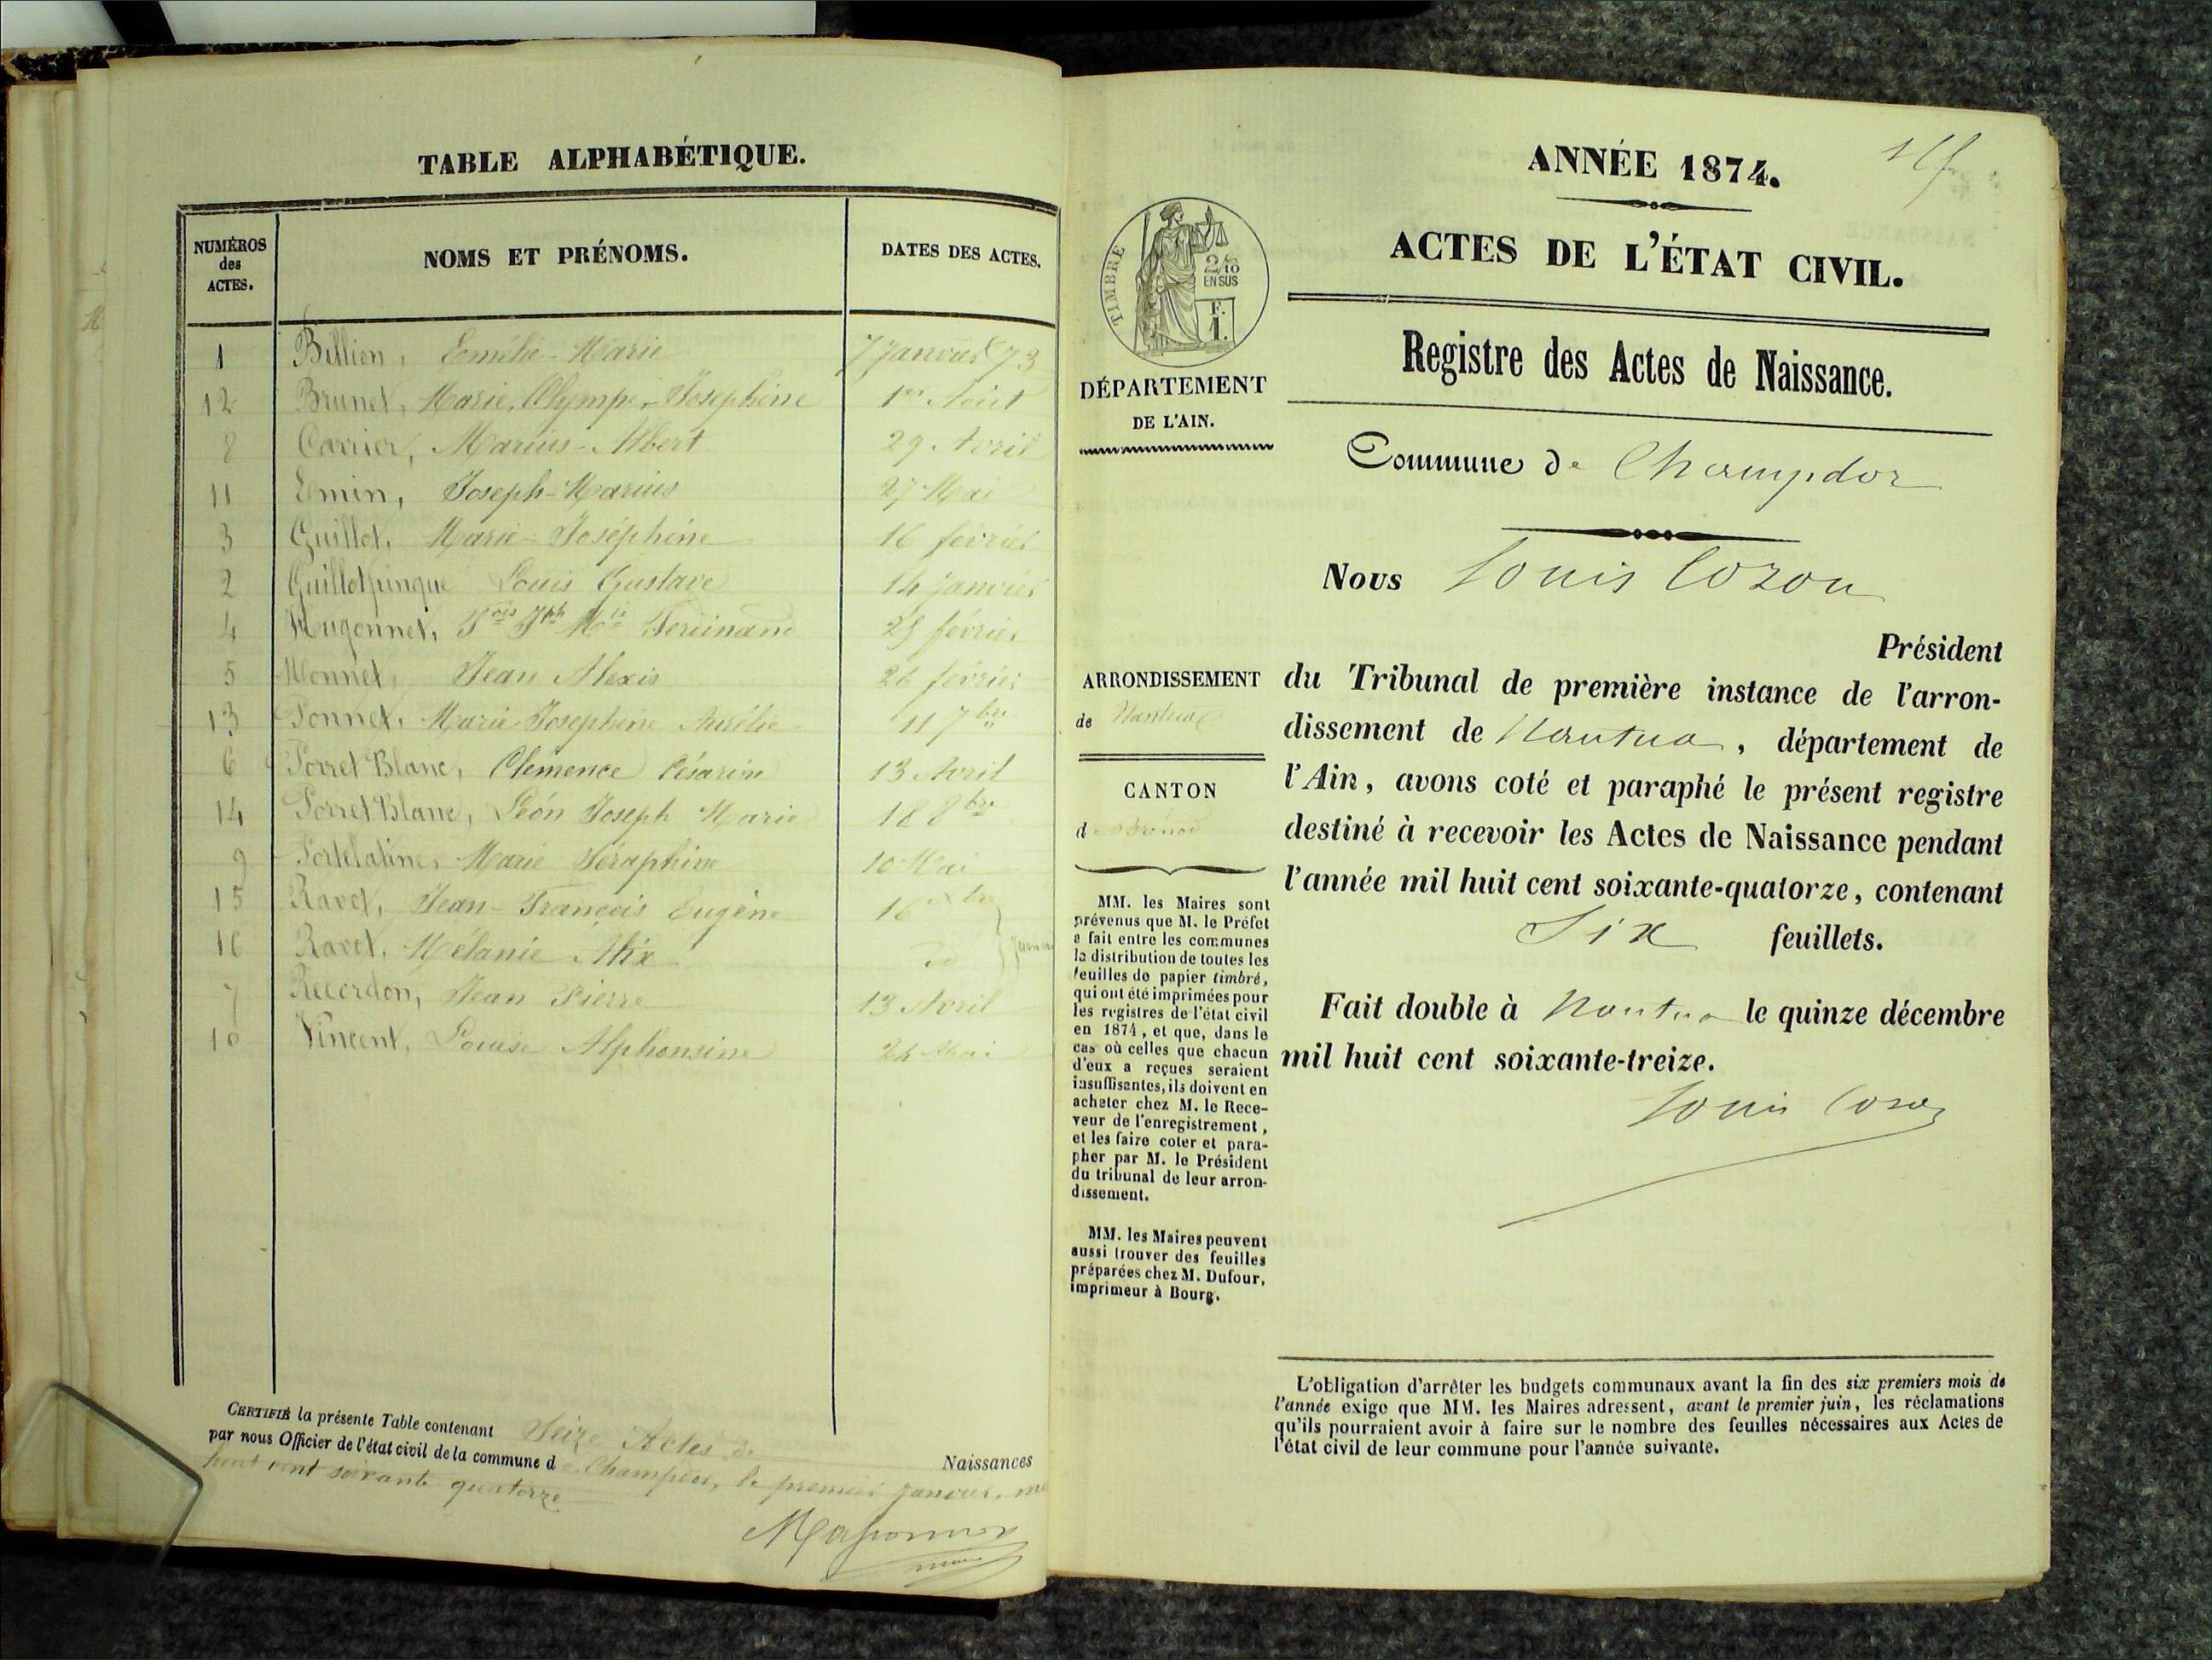 TABLE ALPHABÉTIQUE.
NUMÉROS des ACTES. NOMS ET PRÉNOMS. DATES DES ACTES.
1 Billion, Emélie-Marie 7 Janvier 73
12 Brunet, Marie, Olympe, Josephine 1er Août
8 Carrier, Marius-Albert 29 Avril
11 Emin, Joseph-Marius 27 Mai
3 Guillot, Marie-Joséphine 16 février
2 Guillotpinque Louis Gustave 14 janvier
4 Hugonnet, Fois Jph Mie Ferdinand 25 février
5 Monnet, Jean Alexis 26 février
13 Ponnet, Marie Josephine Aurélie 11 7bre
6 Porret Blanc, Clémence Césarine 13 Avril
14 Porret Blanc, Léon Joseph Marie 18 8bre
9 Portelatine, Marie Séraphine 10 Mai
15 Ravet, Jean-François Eugène 16 Xbre
16 Ravet, Mélanie Alix do
7 Recordon, Jean Pierre 13 Avril
10 Vincent, Louise Alphonsine 24 Mai
CERTIFIÉ la présente Table contenant Seize Actes de Naissances
par nous Officier de l'état civil de la commune de Champdor, le premier janvier, mil
huit cent soixante quatorze
maire
ANNÉE 1874.
ACTES DE L'ÉTAT CIVIL.
Registre des Actes de Naissance.
Commune de Champdor
TIMBRE
2/10
EN SUS
F.
1.
DÉPARTEMENT
DE L'AIN.
ARRONDISSEMENT
de Nantua
CANTON
de Brénod
MM. les Maires sont
prévenus que M. le Préfet
a fait entre les communes
la distribution de toutes les
feuilles de papier timbré,
qui ont été imprimées pour
les registres de l'état civil
en 1874, et que, dans le
cas où celles que chacun
d'eux a reçues seraient
insuffisantes, ils doivent en
acheter chez M. le Rece-
veur de l'enregistrement,
et les faire coter et para-
pher par M. le Président
du tribunal de leur arron-
dissement.
MM. les Maires peuvent
aussi trouver des feuilles
préparées chez M. Dufour,
imprimeur à Bourg.
Nous Louis Cozon
Président
du Tribunal de première instance de l'arron-
dissement de Nantua, département de
l'Ain, avons coté et paraphé le présent registre
destiné à recevoir les Actes de Naissance pendant
l'année mil huit cent soixante-quatorze, contenant
Six feuillets.
Fait double à Nantua le quinze décembre
mil huit cent soixante-treize.
Louis Cozon
L'obligation d'arrêter les budgets communaux avant la fin des six premiers mois de
l'année exige que MM. les Maires adressent, avant le premier juin, les réclamations
qu'ils pourraient avoir à faire sur le nombre des feuilles nécessaires aux Actes de
l'état civil de leur commune pour l'année suivante.